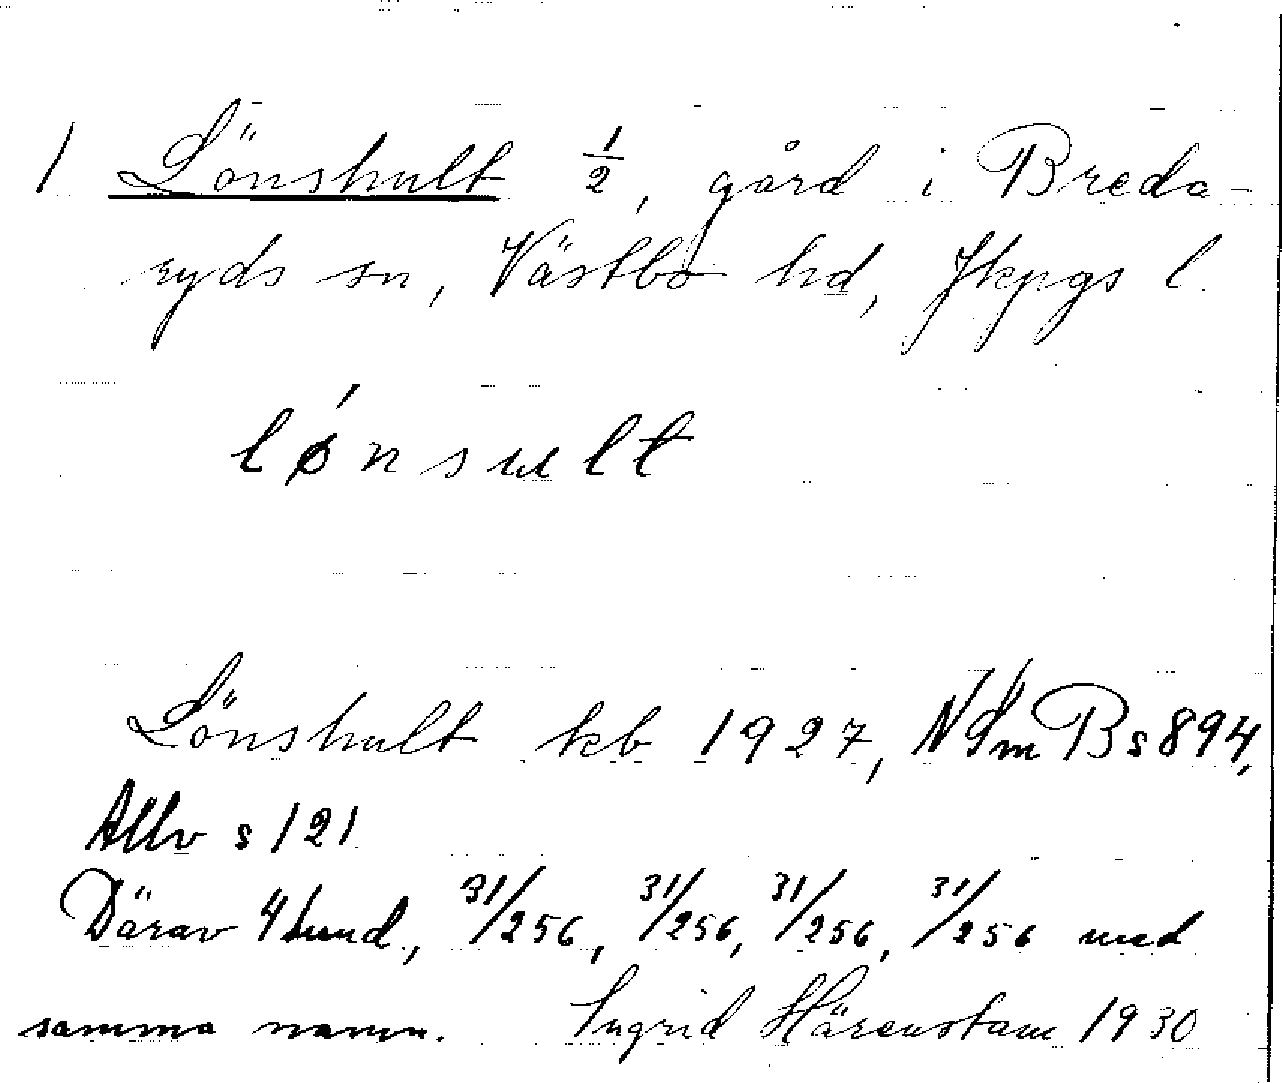 1 Lönshult 1/2, gård i Breda-
ryds sn, Västbo hd, Jkpgs l.
lǿnsult
Lönshult kb 1927, NSm B s 894,
Allv s 121
Därav 4 hmd, 31/256, 31/256, 31/256, 31/256 med
samma namn. Ingrid Härenstam 1930